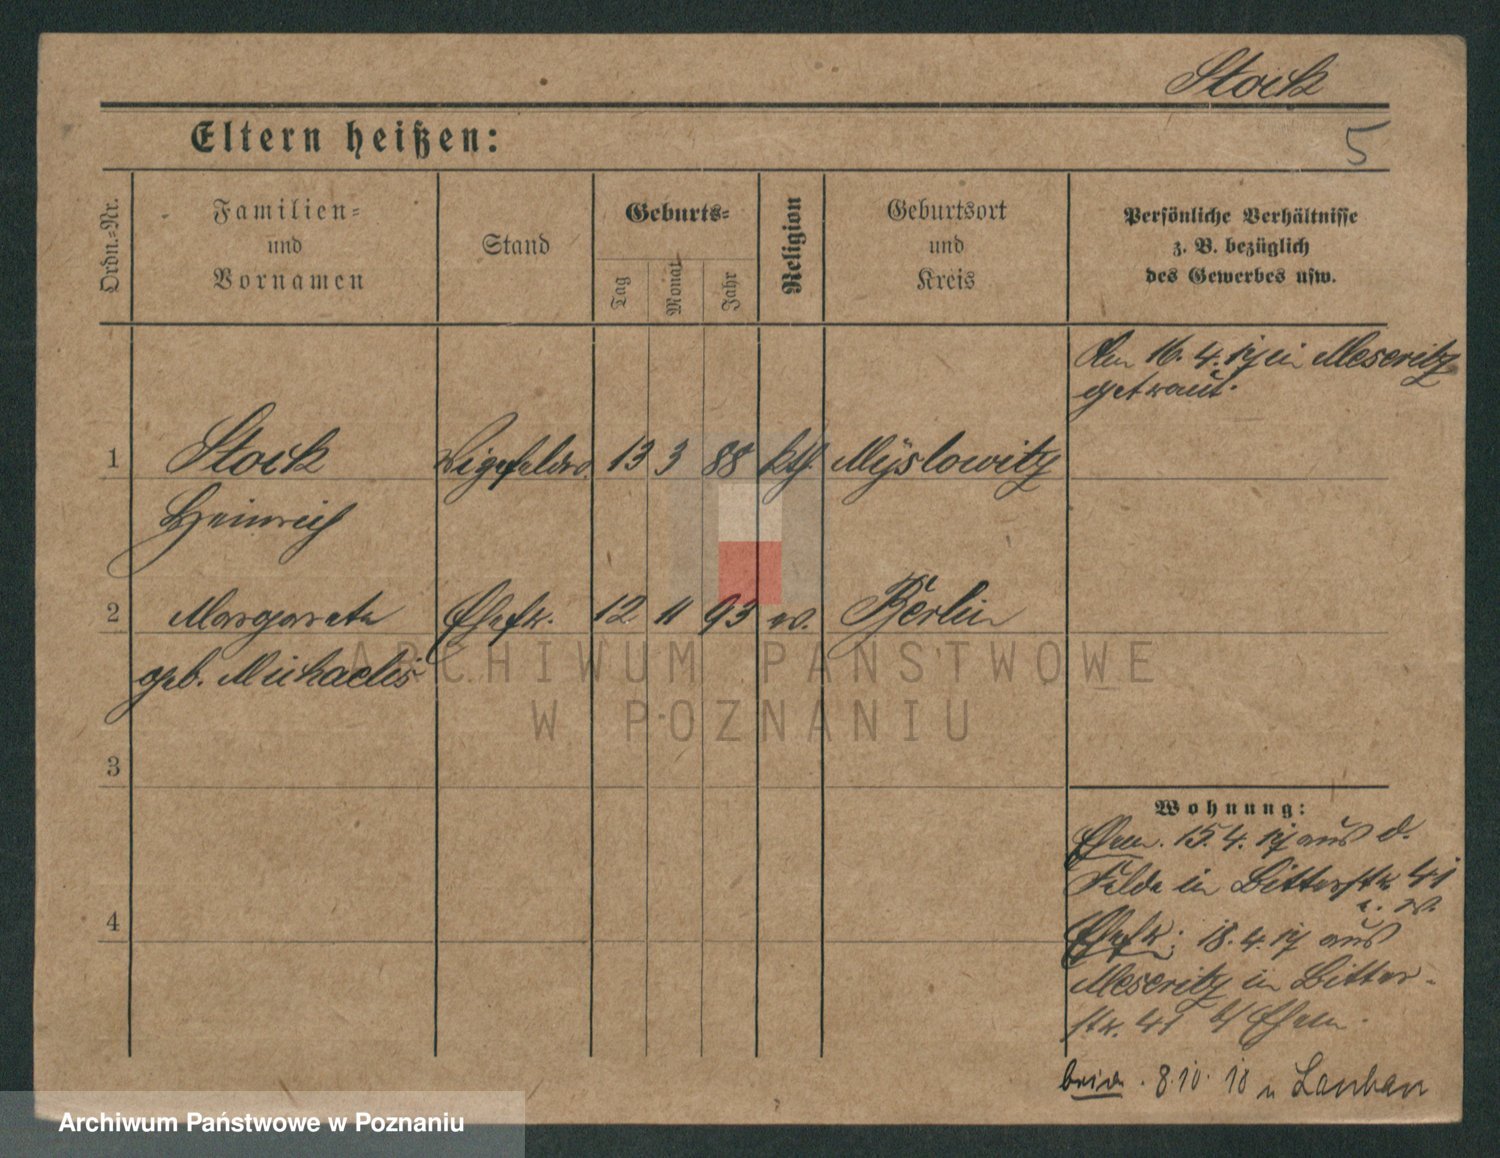 Stock
5
Eltern heißen:
Ordn.-Nr.
Familien-
und
Vornamen
Stand
Geburts-
Tag
Monat
Jahr
Religion
Geburtsort
und
Kreis
Persönliche Verhältnisse
z. B. bezüglich
des Gewerbes usw.
Am 16. 4. 17 in Meseritz
getraut.
1 Stock 13 3 88 kth. Myslowitz
Heinrich
2 Margarete Ehefr. 12 11 93 ev. Berlin
geb. Michaelis
3
4
Wohnung:
Ehem. 15. 4. 17 aus d.
Felde in Bitterstr. 41
Ehefr. 18. 4. 17 aus
Meseritz in Bitter-
str. 41 b/ Ehem.
beide. 8.10. 18 n Lauban
ARCHIWUM PAŃSTWOWE
W POZNANIU
Archiwum Państwowe w Poznaniu